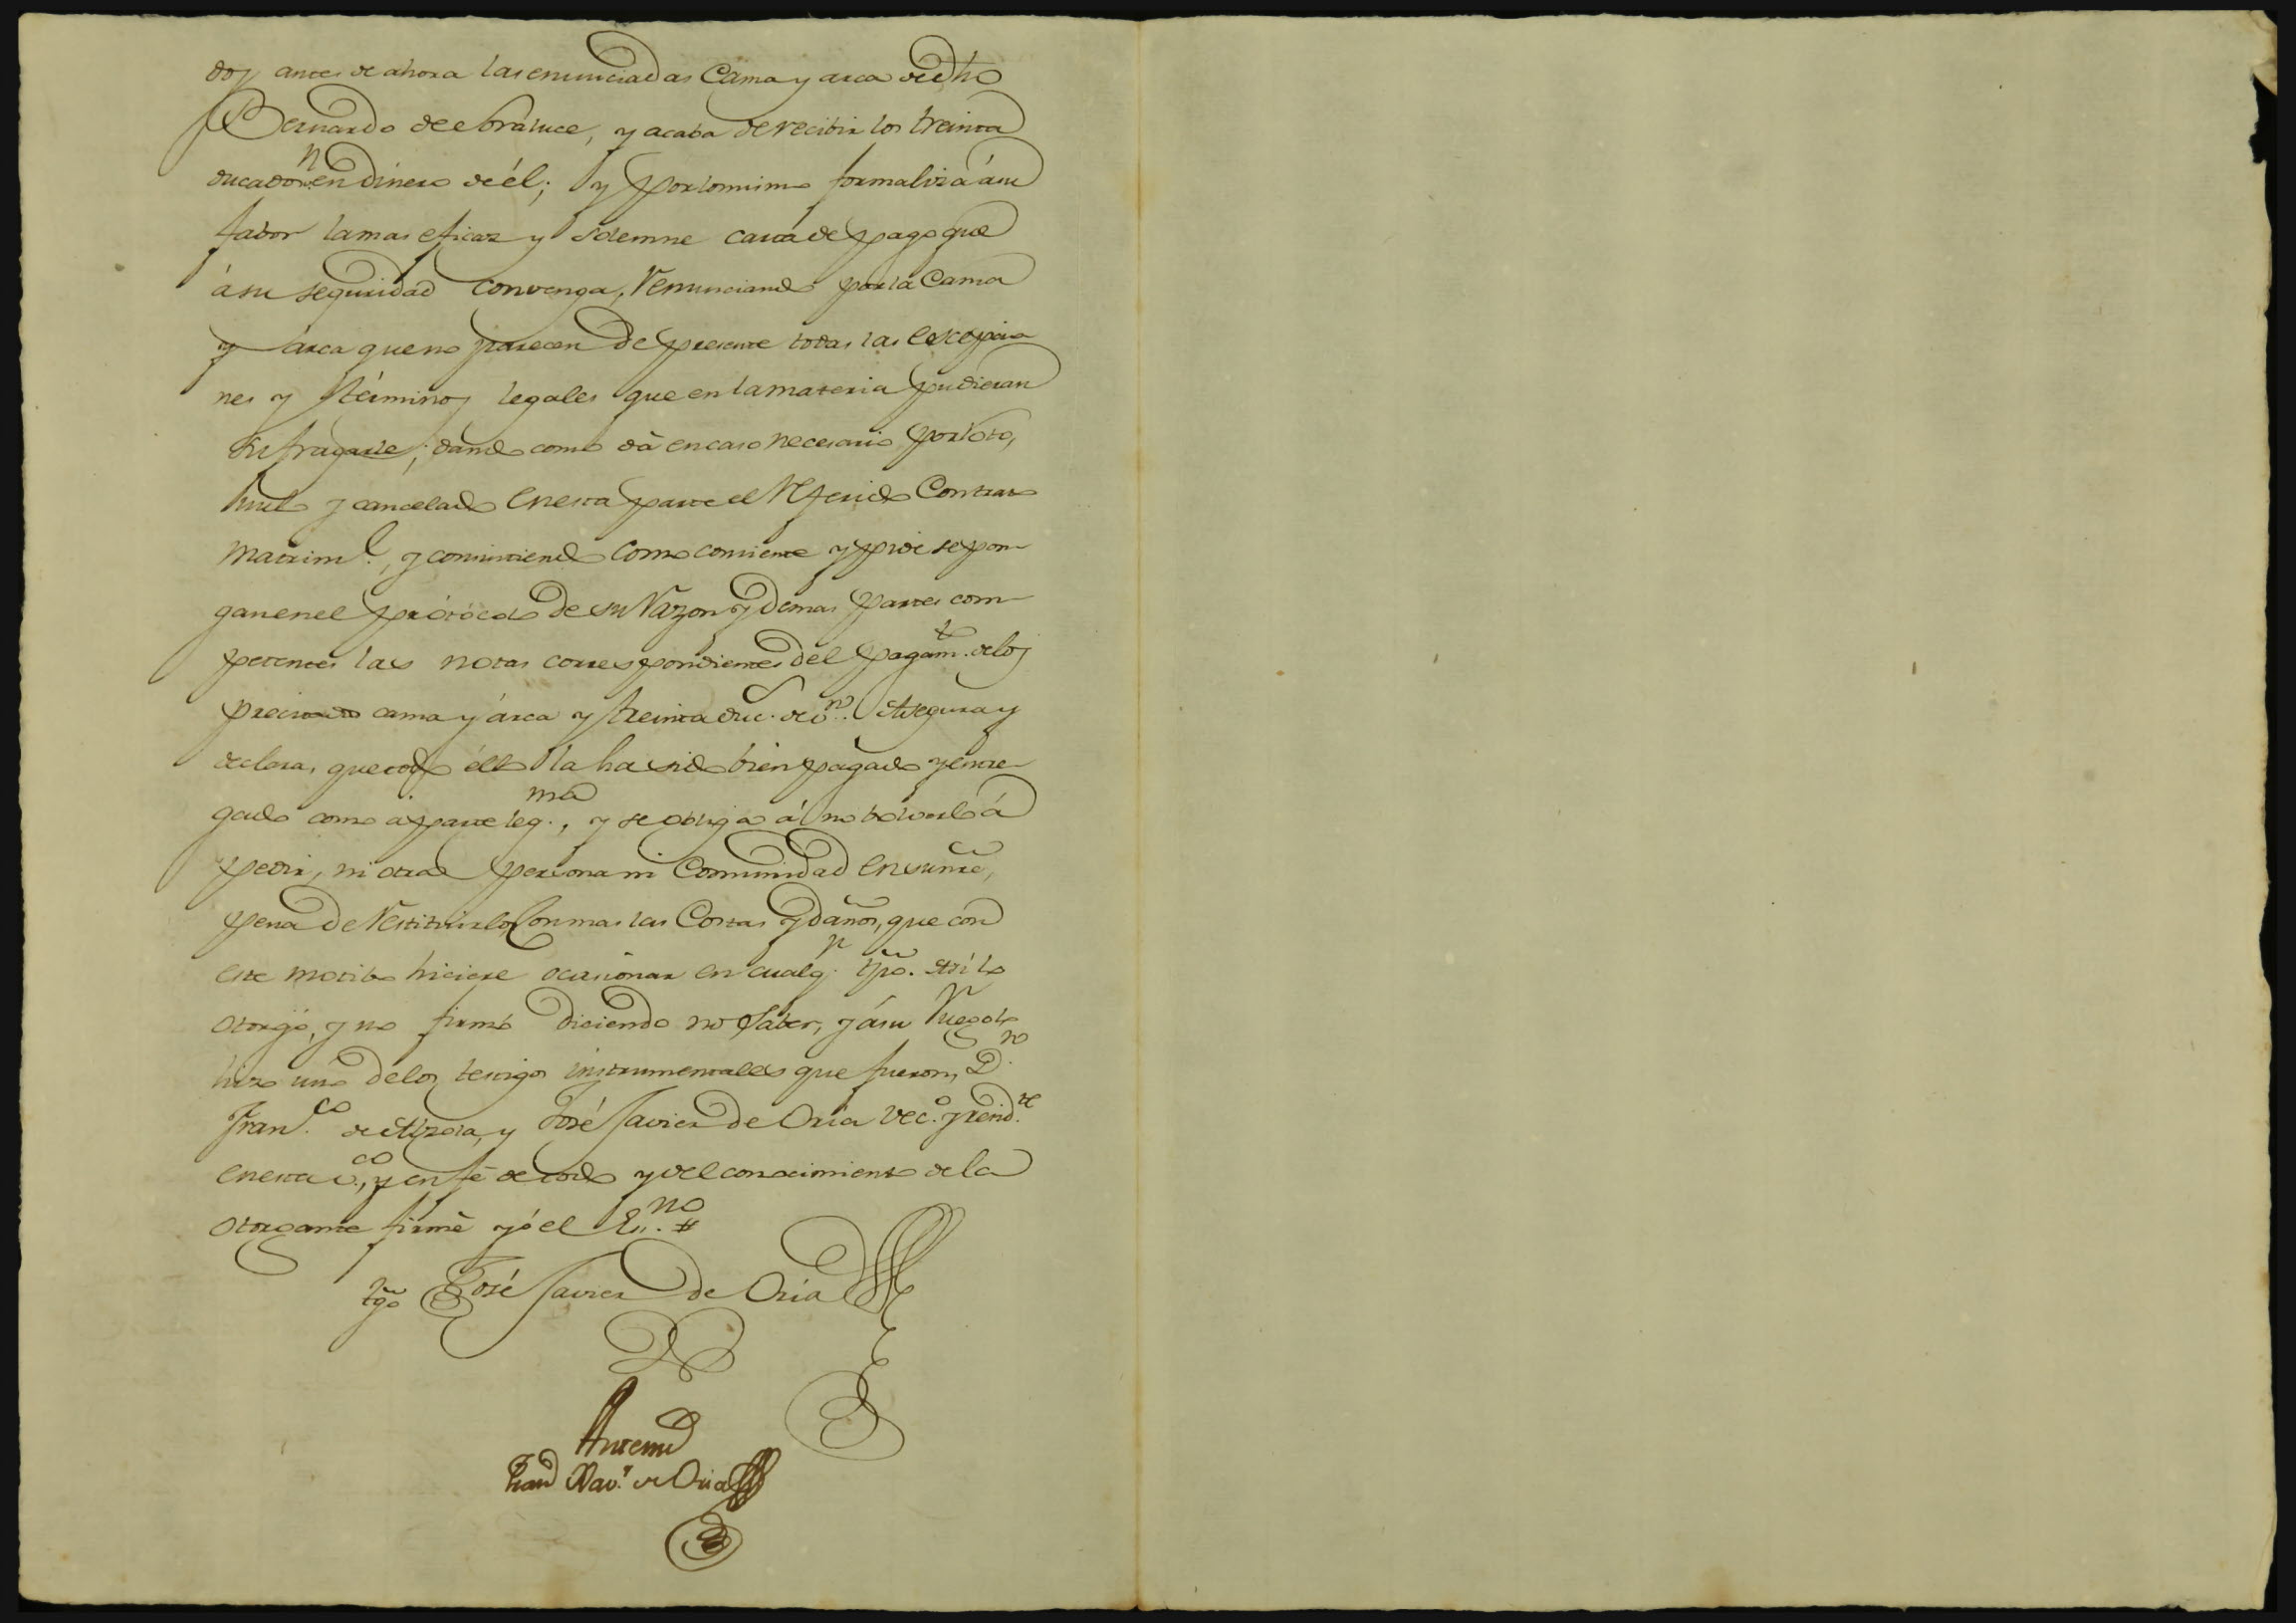 dos antes de ahora las enunciadas Cama y arca de dho
Bernardo de, y acaba de recibir los treinta
ducados en dinero de él; y por lo mismo formaliza á su
fabor la mas eficaz y solemne carta de pago que
á su seguridad convenga, Renunciando por la Cama
y árca que no parecen de presente todas las excepcio
nes y términos legales que en la materia pudieran
sufragarle; dando como dá en caso necesario por roto,
nulo y cancelado en esta parte el Referido Contrato
matriml., y consintiendo como consiente y pide se pon-
gan en el prótócolo de su Razon y demas partes com-
petentes las notas correspondientes del pagamto. de los
precitado cama y árca y treinta duc.s de vn. Asegura y
declara, que todo éllo la ha sido bien pagado y entre-
gado como á parte legma., y se obliga á no bolverlo á
pedir, ni otra persona ni Comunidad en su nre,
pena de Restituirlo, con mas las Costas y daños, que con
este motibo hiciere ocasionar en cualqr. tpo. Así lo
otorgó, y no firmó diciendo no saber, y á su Ruego lo
hizo uno de los testigos instrumentales que fueron, Dn.
Franco. de Alzola, y José Javier de Oria veco. y residte.
en esta va., y en fé de todo y del conocimiento de la
otorgante firmé yó el Esno. #
tgo José Javier de Oria
Antemi
Xavr. de Oria